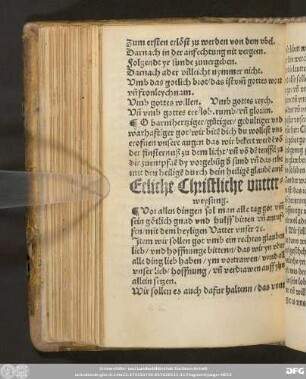 Zum ersten erlöst zu werden von dem vbel.
Darnach in der anfechtung nit vergeen.
Folgendt ye sünde zuuergeben.
Darnach aber villeicht nymmer nicht.
Vmb das götlich brot/das ist vm̃ gottes wort
vñ fronleychnam.
Vmb gottes willen. Vmb gottes reych.
Vñ vmb gottes ere/lob/rumb/vñ glorien.
¶ O barmhertziger/gütiger/
warhafftiger got/wir bitt dich du wöllest vns
eröfnen vnsere augen das wir bekert werdē vō
der finsternuß zu dem licht/vñ vō dē teüffel zů
mit den heilige durch dein heilige glaube
Etliche Christliche vnter
weysung.
¶ Vor allen dingen sol man alle tag got vm̃
sein götlich gnad vnd hülff bitten vñ anrüf
fen/mit dem heyligen Vatter vnser ꝛc.
Item wir sollen got vmb ein rechten glauben
lieb/vnd hoffnung bitten/das wir jn vor
alle ding lieb haben/ym vertrawen/vnd all
vnser lieb/hoffnung/vñ verdrawen auff jn
allein setzen.
Wir sollen es auch dafür halten/das vnns